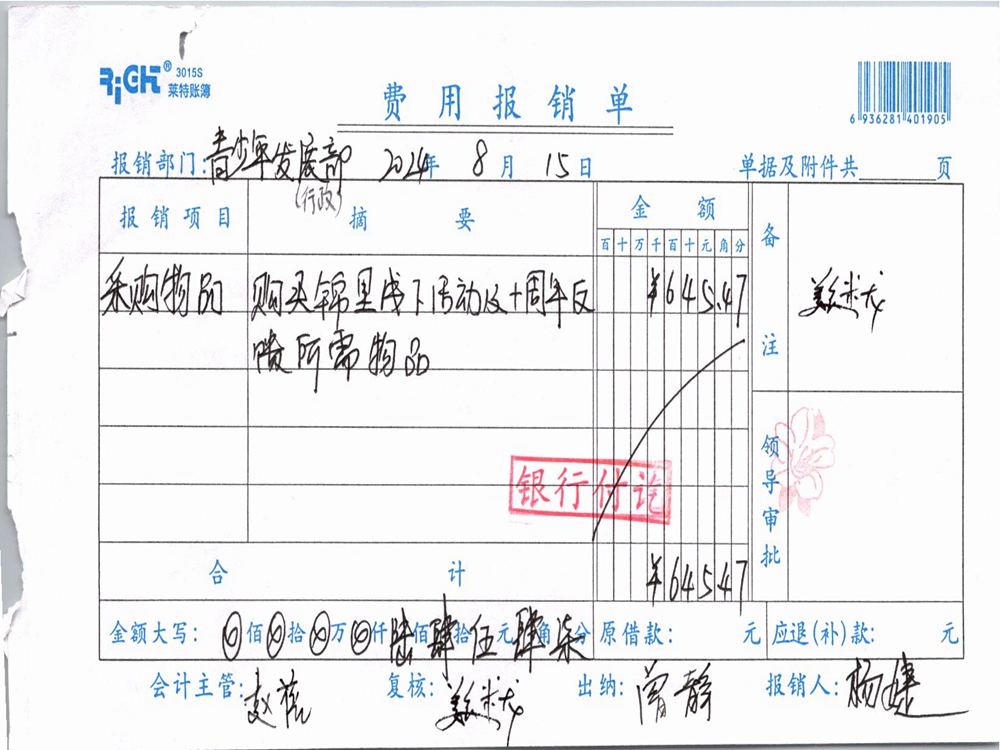 RiGHT® 3015S
莱特账簿
费用报销单
6 936281 401905
报销部门:青少年发展部 2024年 8月 15日 单据及附件共 页
(行政)
报销项目 摘要 金额 备注
百十万千百十元角分
采购物品 购买锦里线下活动及十周年反 ¥645.47
馈所需物品
银行付讫
领导审批
合计 ¥645.47
金额大写: 佰 拾 万 仟陆佰肆拾伍元肆角柒分 原借款: 元 应退(补)款: 元
会计主管: 复核: 出纳:曾静 报销人:杨婕